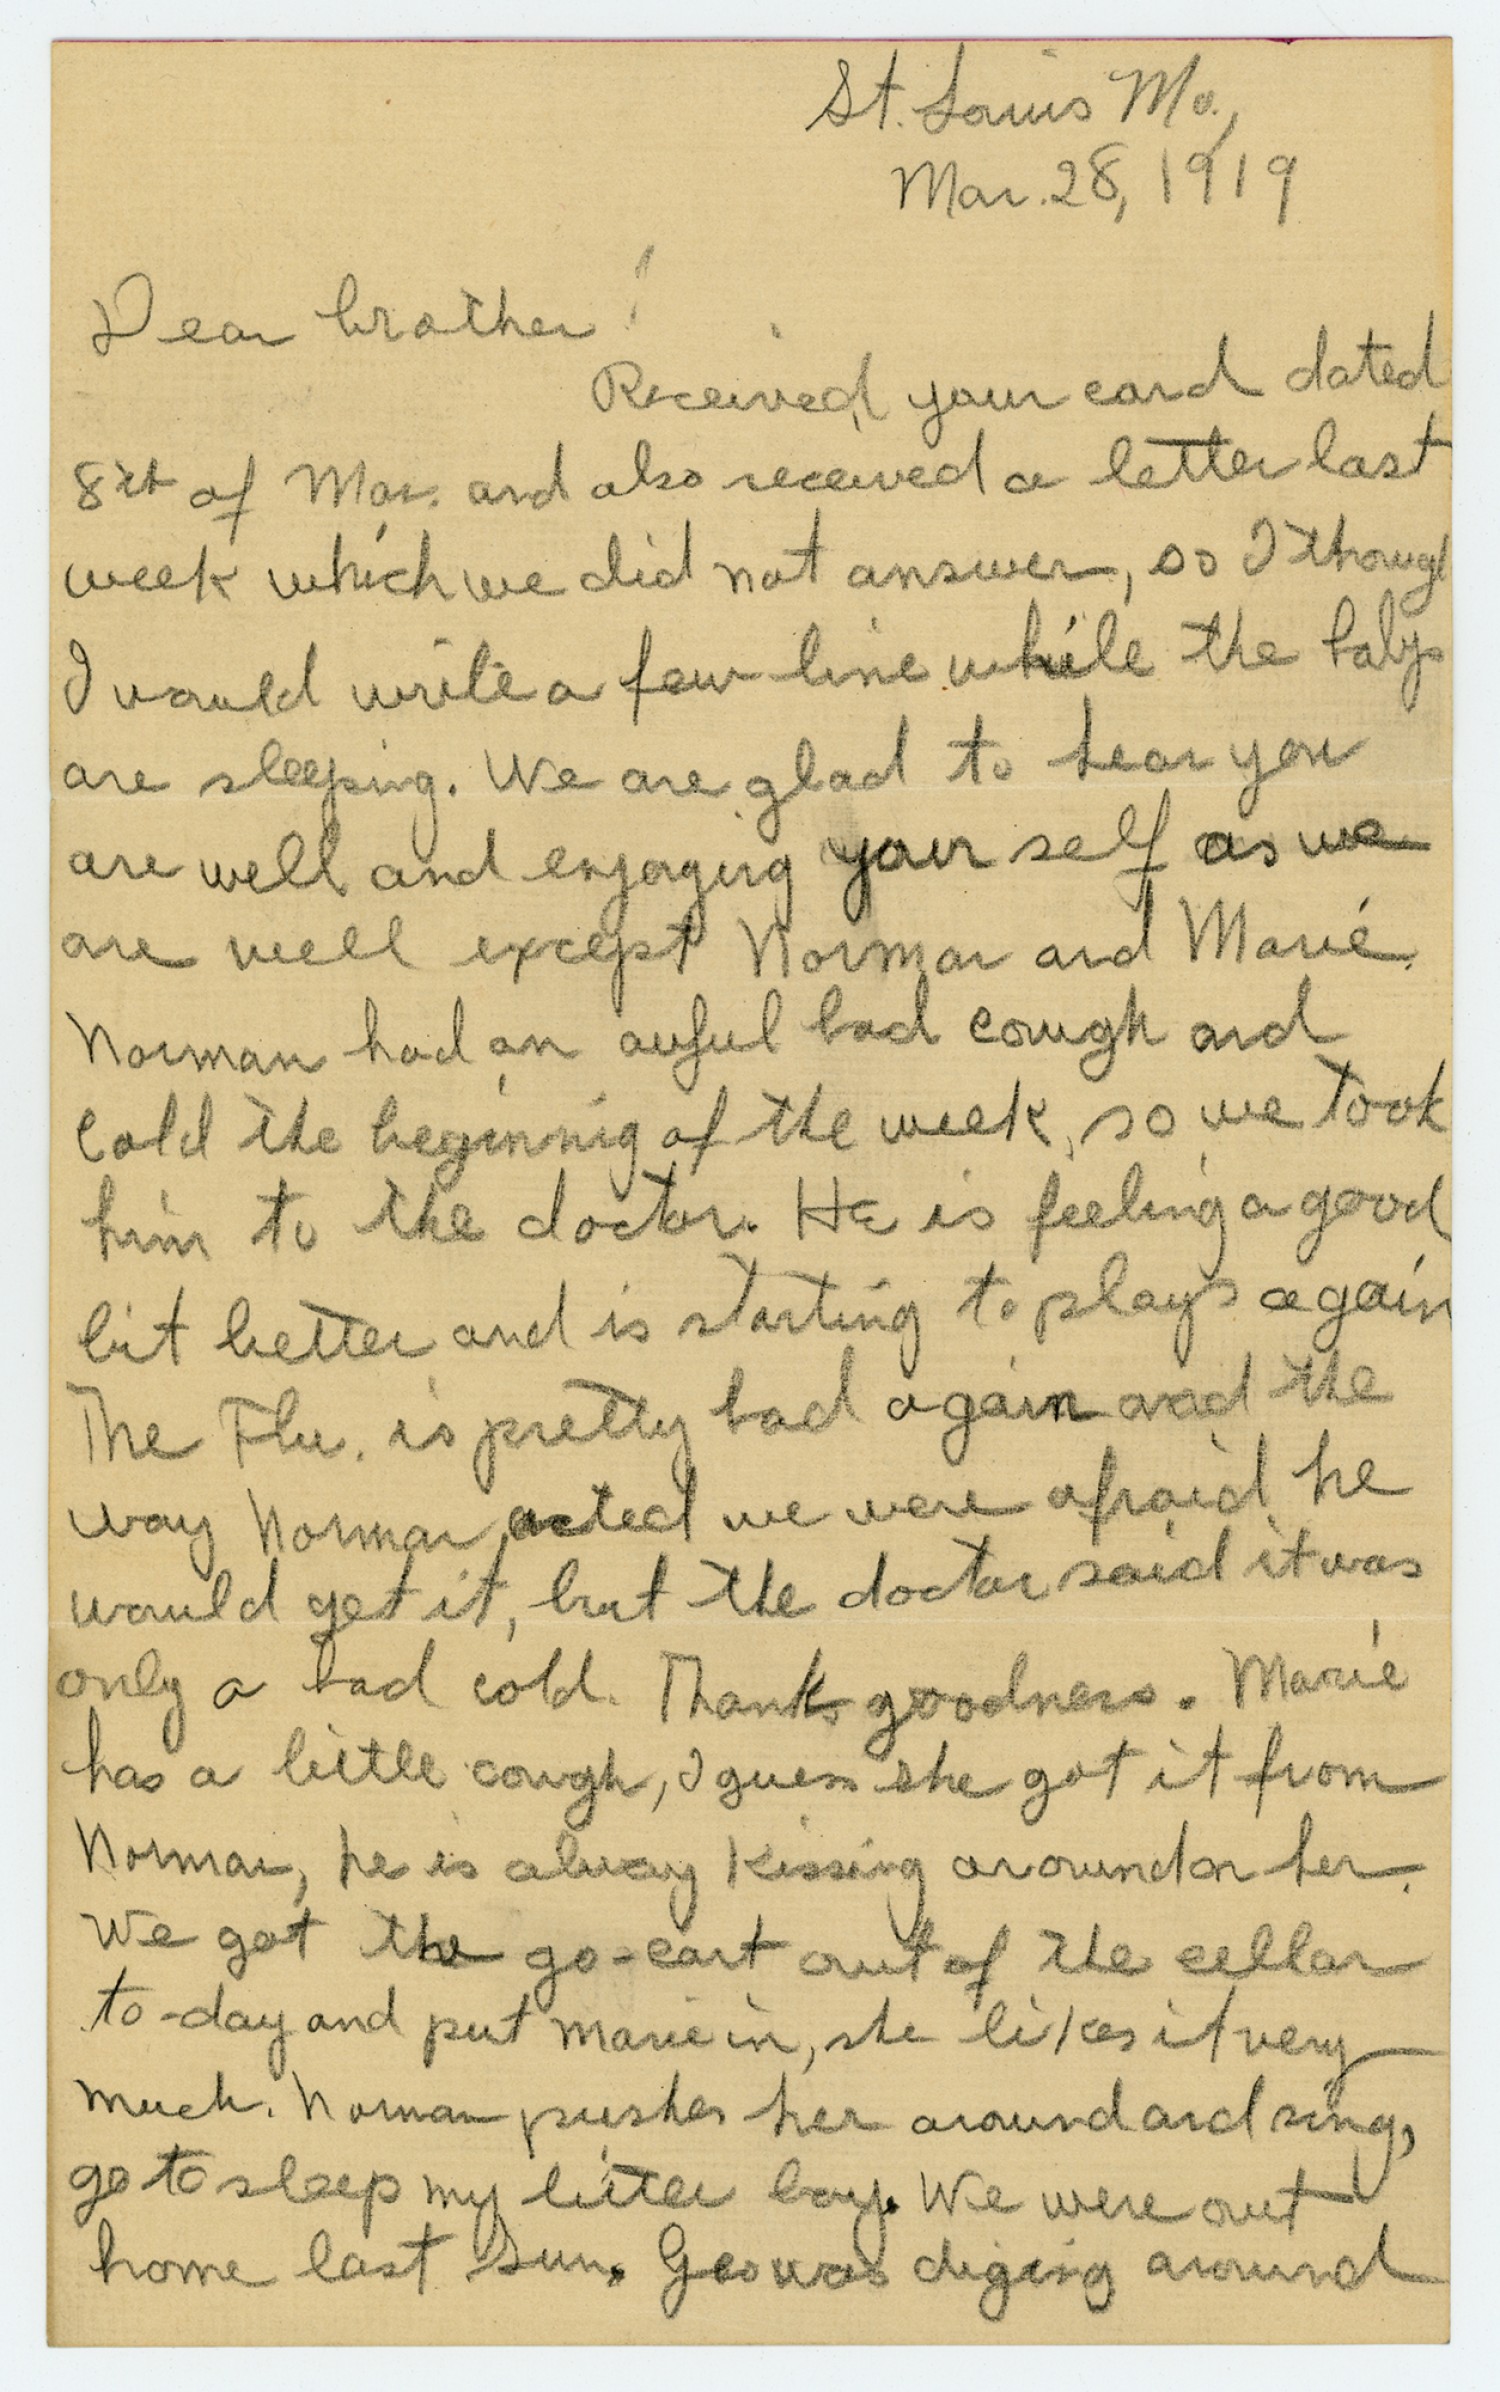 St. Louis Mo.,
Mar. 28, 1919
Dear brother!
Received your card dated
8th of Mar. and also received a letter last
week which we did not answer, so I though
I would write a few line while the babys
are sleeping. We are glad to hear you
are well and enjoying your self as we
are well except Norman and Marie.
Norman had an awful bad cough and
cold the beginnig of the week, so we took
him to the doctor. He is feeling a good
bit better and is starting to plays again
The Flu. is pretty bad again and the
way Norman acted we were afraid he
would get it, but the doctor said it was
only a bad cold. Thanks goodness. Marie
has a little cough, I guess she got it from
Norman, he is alway kissing around on her.
We got the go-cart out of the cellar
to-day and put Marie in, she likes it very
much. Norman pushes her around and sing,
go to sleep my litter boy. We were out
home last Sun. Geo was diging around